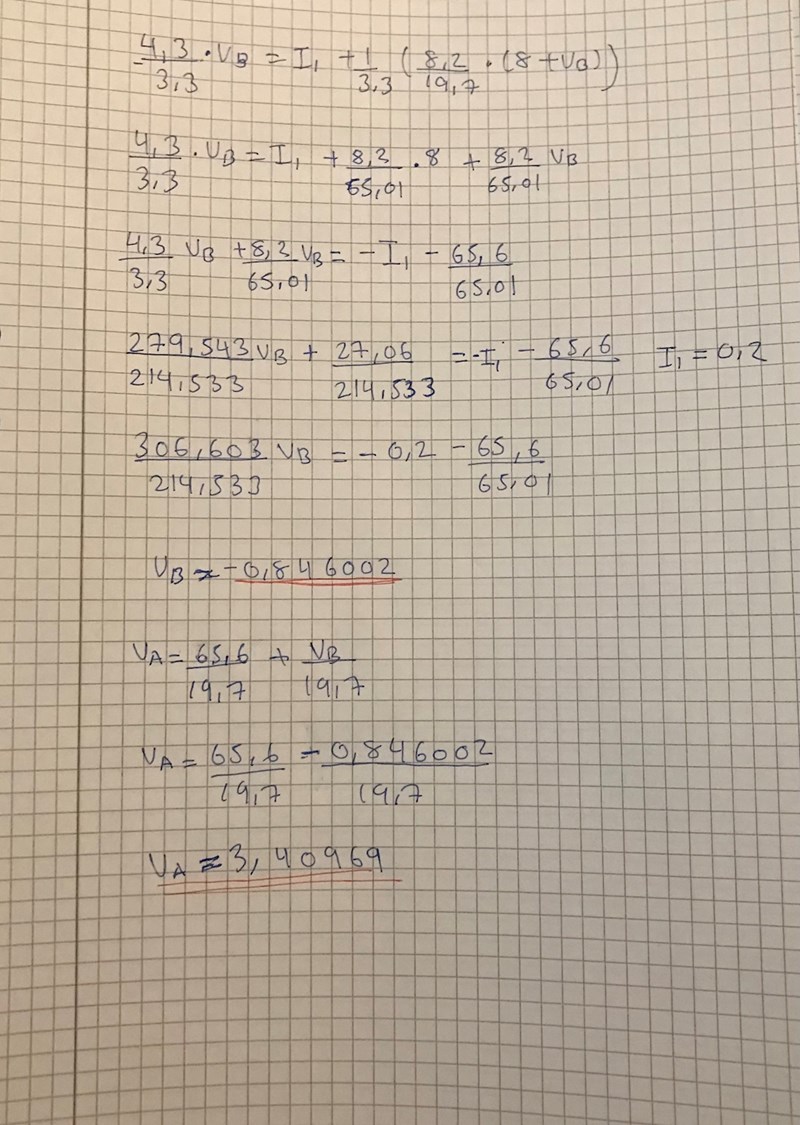 -4,3/3,3 · V_B = I_1 + 1/3,3 (8,2/19,7 · (8 + V_B))
4,3/3,3 · V_B = I_1 + 8,2/65,01 · 8 + 8,2/65,01 V_B
4,3/3,3 V_B + 8,2/65,01 V_B = - I_1 - 65,6/65,01
279,543/214,533 V_B + 27,06/214,533 = -I_1 - 65,6/65,01 I_1 = 0,2
306,603/214,533 V_B = - 0,2 - 65,6/65,01
V_B ≈ -0,846002
V_A = 65,6/19,7 + V_B/19,7
V_A = 65,6/19,7 - 0,846002/19,7
V_A ≈ 3,40969